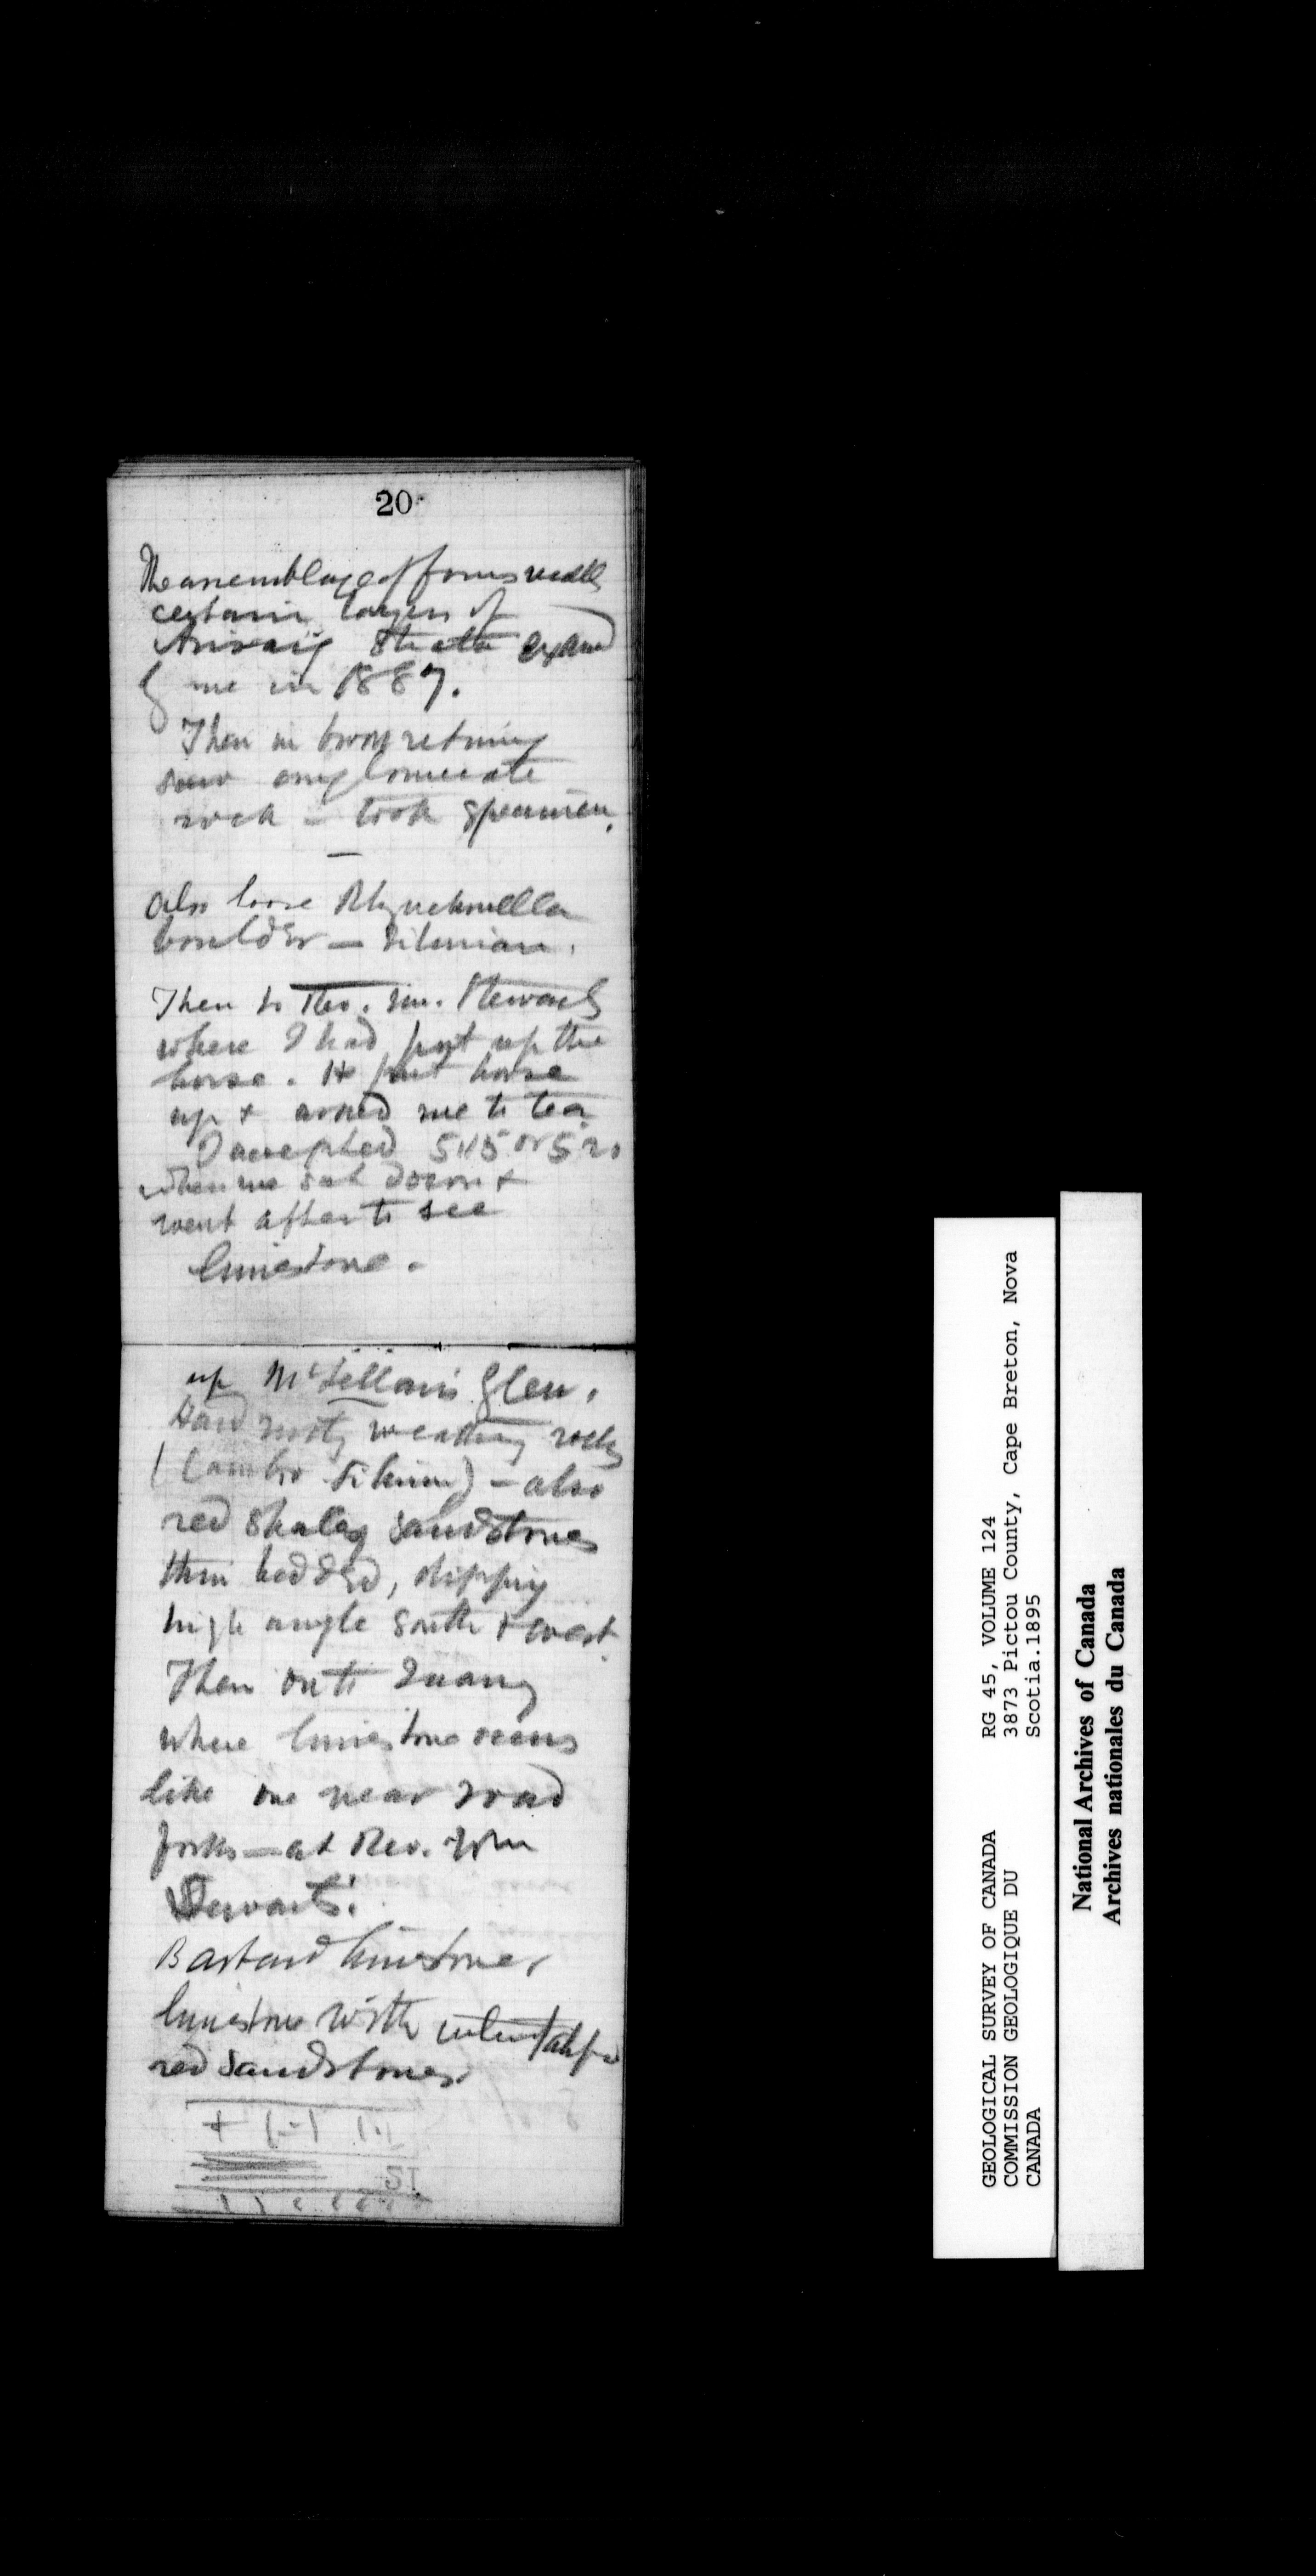 20
The assemblage of forms recalls
certain layers of
Arisaig Strata exam
by me in 1887.
Then in brook returning
saw conglomerate
rock – took specimen.
also loose Rhynchonella
boulder — Silurian.
Then to Rev. Mr. Stewart's
where I had put up the
horse. He put horse
up + asked me to tea
I accepted 5.15 or 5 20
when we sat down +
went after to see
limestone.
up McLellan's Glen.
Hard rusty weathering rocks
(Cambro Silurian) – also
red shaley sandstones
thin bedded, dipping
high angle south + west.
Then on to Quarry
where limestone occurs
like one near road
forks — at Rev.
Stewarts'.
Bastard limestone,
limestone with
red sandstones
ST
GEOLOGICAL SURVEY OF CANADA
COMMISSION GEOLOGIQUE DU
CANADA
RG 45, VOLUME 124
3873 Pictou County, Cape Breton, Nova
Scotia.1895
National Archives of Canada
Archives nationales du Canada